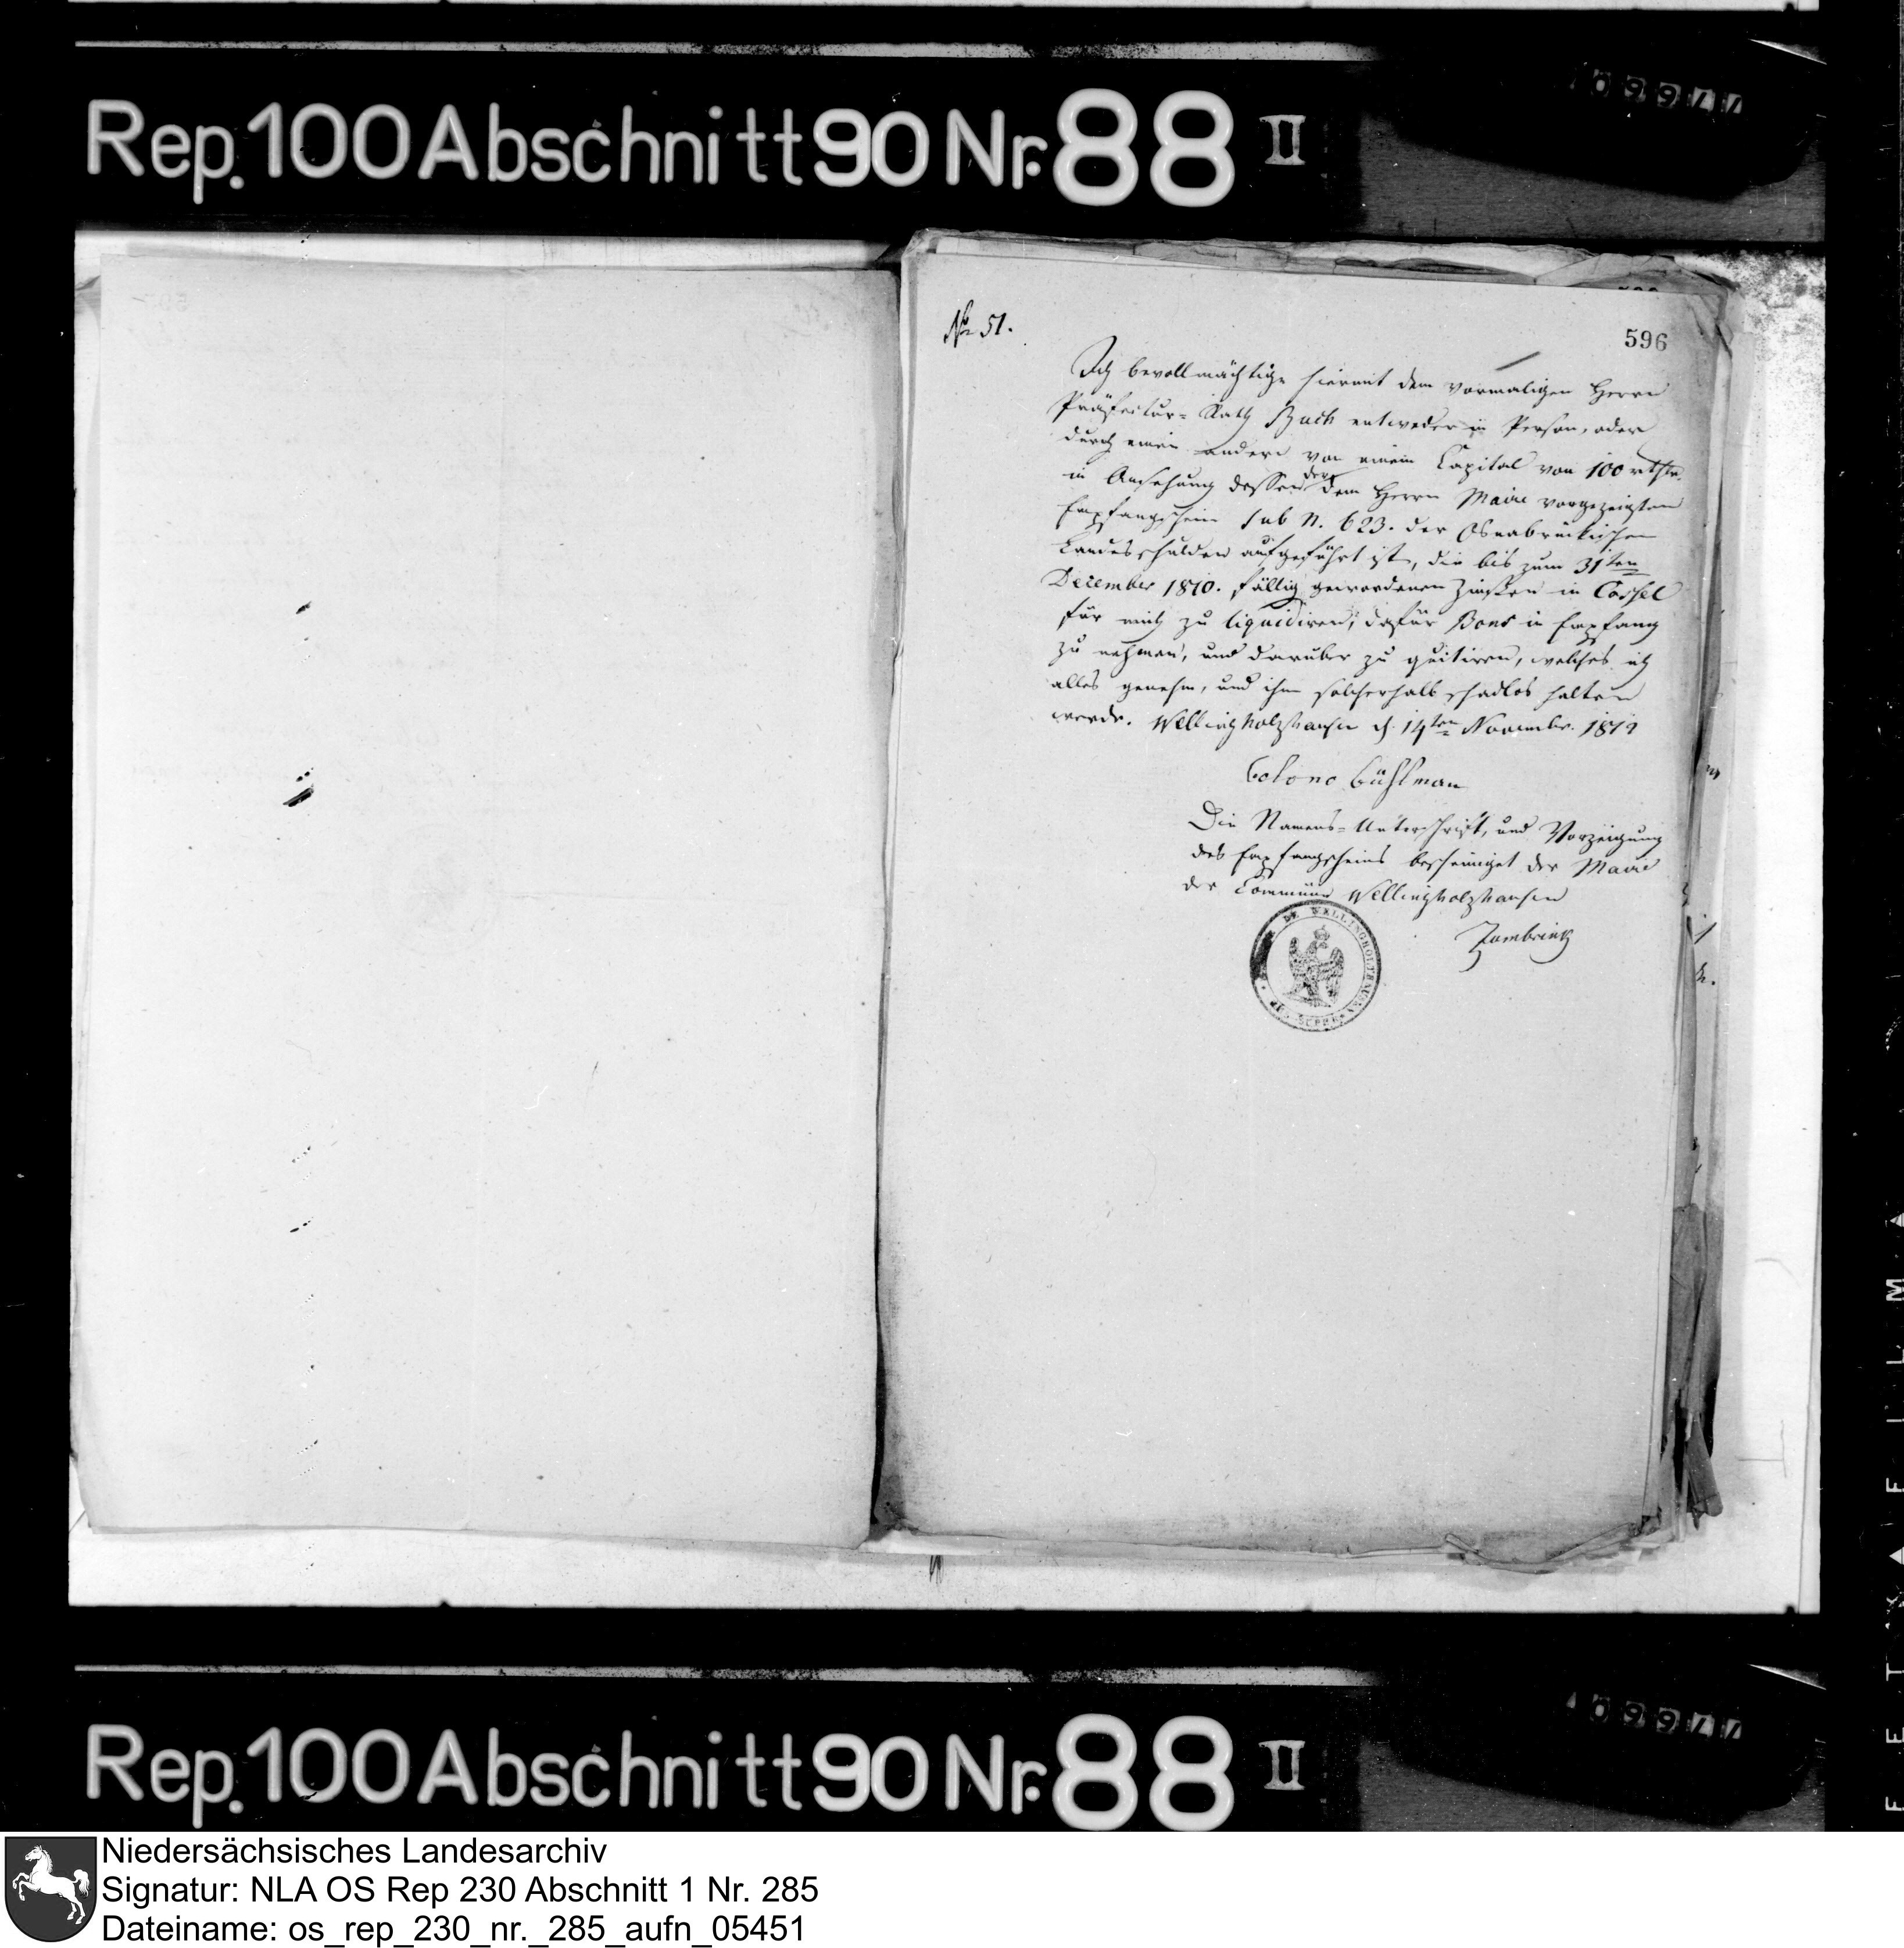 Rep. 100 Abschnitt 90 Nr. 88 II
No 51.
596
Ich bevollmächtige hiermit dem vormaligen Herrn
Präfectur-Rath Buch entweder in Person, oder
durch einen andern von einem Capital von 100 rthlr.
in Ansehung dessen der dem Herrn Maire vorgezeigten
Empfangschein sub N. 623. der Osnabrückischen
Landesschulden aufgeführt ist, die bis zum 31ten
December 1810. fällig gewordenen Zinsen in Cassel
für mich zu liquidiren, dafür Bons in Empfang
zu nehmen, und darüber zu quitiren, welches ich
alles genehm, und ihn solcherhalb schadlos halten
werde. Wellingholzhausen d. 14ten Novembr. 1812
Colono
Die Namens-Unterschrift, und Vorzeigung
des Empfangscheins bescheiniget der Maire
der Commüne Wellingholzhausen
DE WELLINGHOLTHAUSEN
Rep. 100 Abschnitt 90 Nr. 88 II
Niedersächsisches Landesarchiv
Signatur: NLA OS Rep 230 Abschnitt 1 Nr. 285
Dateiname: os_rep_230_nr._285_aufn_05451